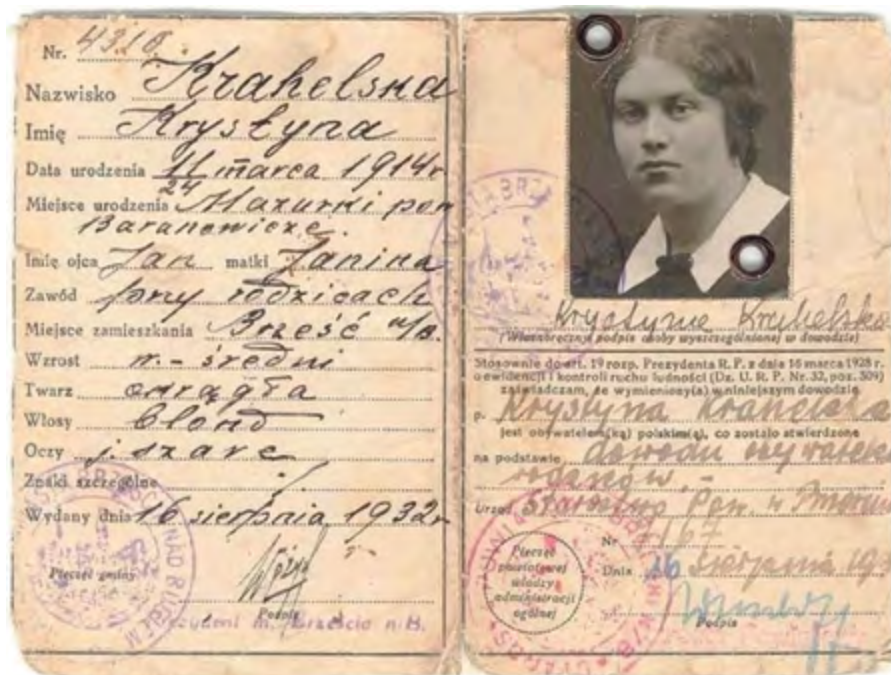 Nr. 4318
Nazwisko Krahelska
Imię Krystyna
Data urodzenia 11 marca 1914r
24
Miejsce urodzenia Mazurki pow
Baranowicze.
Imię ojca Jan matki Janina
Zawód przy rodzicach
Miejsce zamieszkania Brześć n/B.
Wzrost w.-średni
Twarz okrągła
Włosy blond
Oczy j. szare
Znaki szczególne
Wydany dnia 16 sierpnia 1932r
Pieczęć gminy
Podpis
Prezydent m. Brześcia n.B.
NAD BUGIEM
Krystyna Krahelska
(Własnoręczny podpis osoby wyszczególnionej w dowodzie)
Stosownie do art. 19 rozp. Prezydenta R. P. z dnia 16 marca 1928 r.
o ewidencji i kontroli ruchu ludności (Dz. U. R. P. Nr. 32, poz. 309)
zaświadczam, że wymieniony(a) w niniejszym dowodzie
p. Krystyna Krahelska
jest obywatelem(ką) polskim(ą), co zostało stwierdzone
na podstawie dowodu
rodziców,-
Urząd Starostwo Pow. w
Nr 167
Pieczęć
powiatowej
władzy
administracji
ogólnej
Dnia 16 sierpnia 193
Podpis